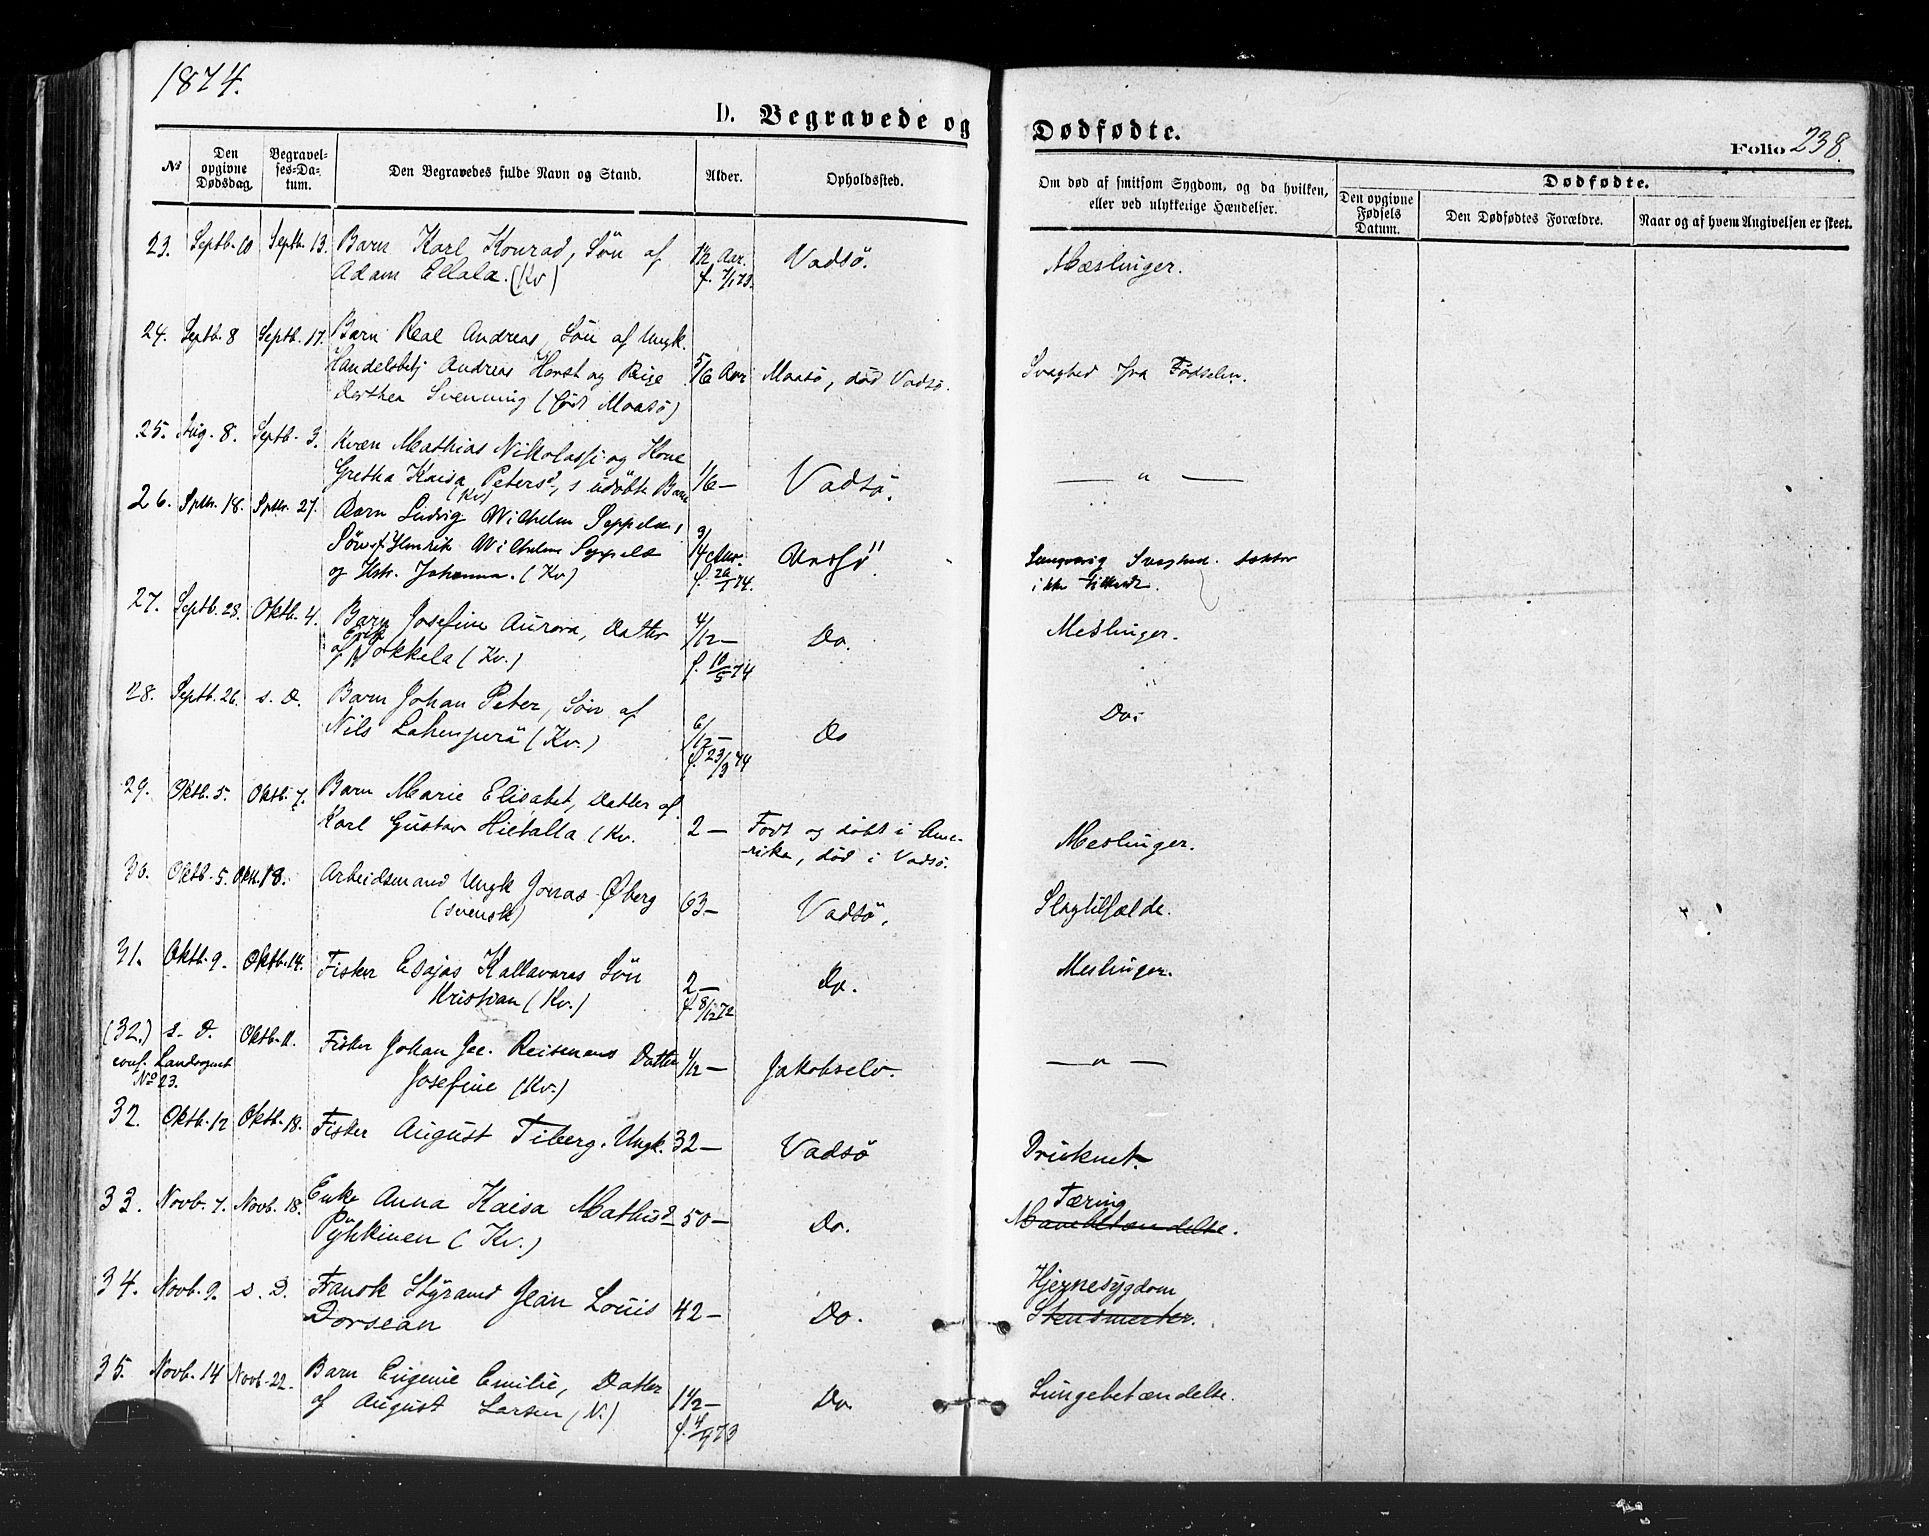 1874.
D. Begravede og Dødfødte.
Folio 238.
No
Den opgivne Dødsdag.
Begravelses=Datum.
Den Begravedes fulde Navn og Stand.
Alder.
Opholdssted.
Om død af smitsom Sygdom, og da hvilken,
eller ved ulykkelige Hændelser.
Dødfødte.
Den opgivne Fødsels Datum.
Den Dødfødtes Forældre.
Naar og af hvem Angivelsen er skeet.
23. Septb. 10 Septb. 13. Barn Karl Konrad, Søn af 1½ Aar. Vadsø. Mæslinger.
Adam Ellala. (Kv) f. 7/1 73.
24. Septb. 8 Septb. 17. Barn Andreas, Søn af Ungk.
Handelsbetj Andreas Horst og 5/6 Aar Maasø, død Vadsø. Svaghed fra Fødselen.
Dorthea Svenning (født Maasø)
25. Aug. 8. Septb. 3. Kvæn Mathias Nikolassi og Kone
Gretha Kaisa Petersd, s udøbte Barn 1/6 — Vadsø. — " —
(Kv)
26. Septbr. 18. Septbr. 27. Barn Ludvig Wilhelm Seppela,
Søn af Henrik Wilhelm Seppela Aar. Vadsø. Langvarig Svaghed. Doktor
og Hstr. Johanna. (Kv) 74. ikke tilkaldt.
27. Septb. 23. Oktb. 4. Barn Josefine Aurora, Datter 4/12 — Do. Meslinger.
Erik
af Nokkela (Kv.) f. 10/5 74
28. Septb. 26. s. D. Barn Johan Peter, Søn af 6/12 — Do Do.
Nils Lahenperä (Kv.) f. 23/3 74
29. Oktb. 5. Oktb. 7. Barn Marie Elisabet, Datter af
Karl Gustav Hietalla (Kv. 2 — Født og døbt i Ame- Meslinger.
-rika, død i Vadsø.
30. Oktb. 5. Oktb. 18. Arbeidsmand Ungk Jonas Øberg 63 — Vadsø. Slagtilfælde.
(svensk)
31. Oktb. 9. Oktb. 14. Fisker Esajas Kallavaras Søn 2 — Do. Meslinger.
Kristian (Kv.) f. 8/12 72
(32.) s. D. Oktb. 11. Fisker Johan Jac. Reismans Datter ½ — Jakobselv. — " —
conf. Landsognet Josefine (Kv.)
No 23.
32. Oktb. 12 Oktb. 18. Fisker August Tiberg. Ungk. 32 — Vadsø Druknet.
33. Novb. 7. Novb. 18. Enke Anna Kaisa Mathisd 50 — Do. Tæring
Pyhkinen (Kv.) Mavebetændelse.
34. Novb. 9. s. D. Fransk Styrmand Jean Louis 42 — Do. Hjernesygdom
Dorsean
35. Novb. 14 Novb. 22. Barn Eugenie Emilie, Datter 1½ — Do. Lungebetændelse.
af August Larsen (N.) 73